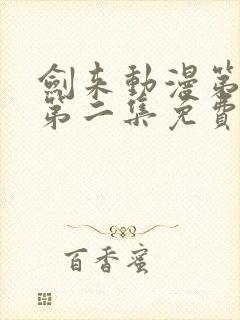 劍来動漫第
第二集免費
百香蜜